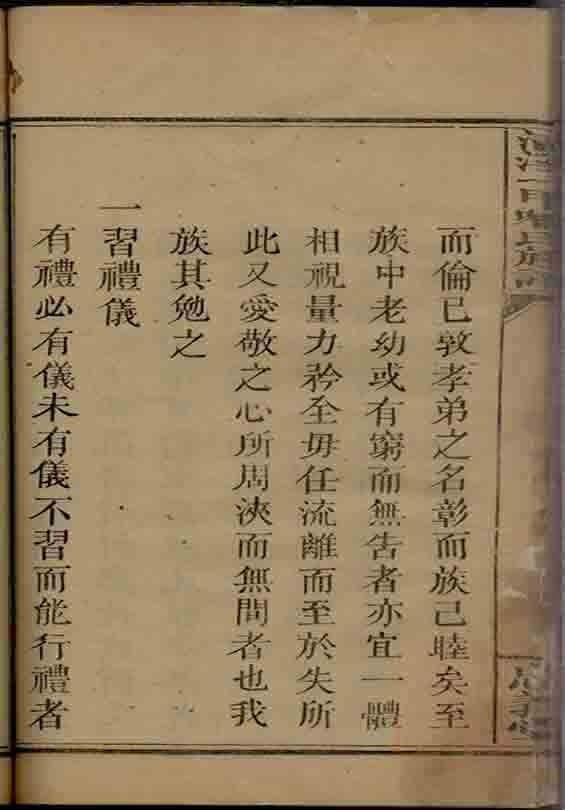 而倫已敦孝弟之名彰而族已睦矣至
族中老幼或有窮而無告者亦宜一體
相視量力矜全毋任流離而至於失所
此又愛敬之心所周浹而無間者也我
族其勉之
一習禮儀
有禮必有儀未有儀不習而能行禮者